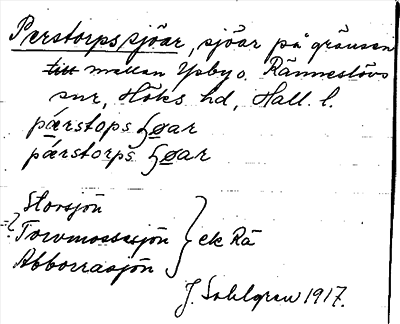 Perstorpssjöar, sjöar på gränsen
till mellan Ysby o. Ränneslövs
snr, Höks hd, Hall. l.
pærstops ʃøar
pærstorps ʃøar
Storsjön
=? Torvmossesjön } ek Rä
Abborrasjön
J. Sahlgren 1917.